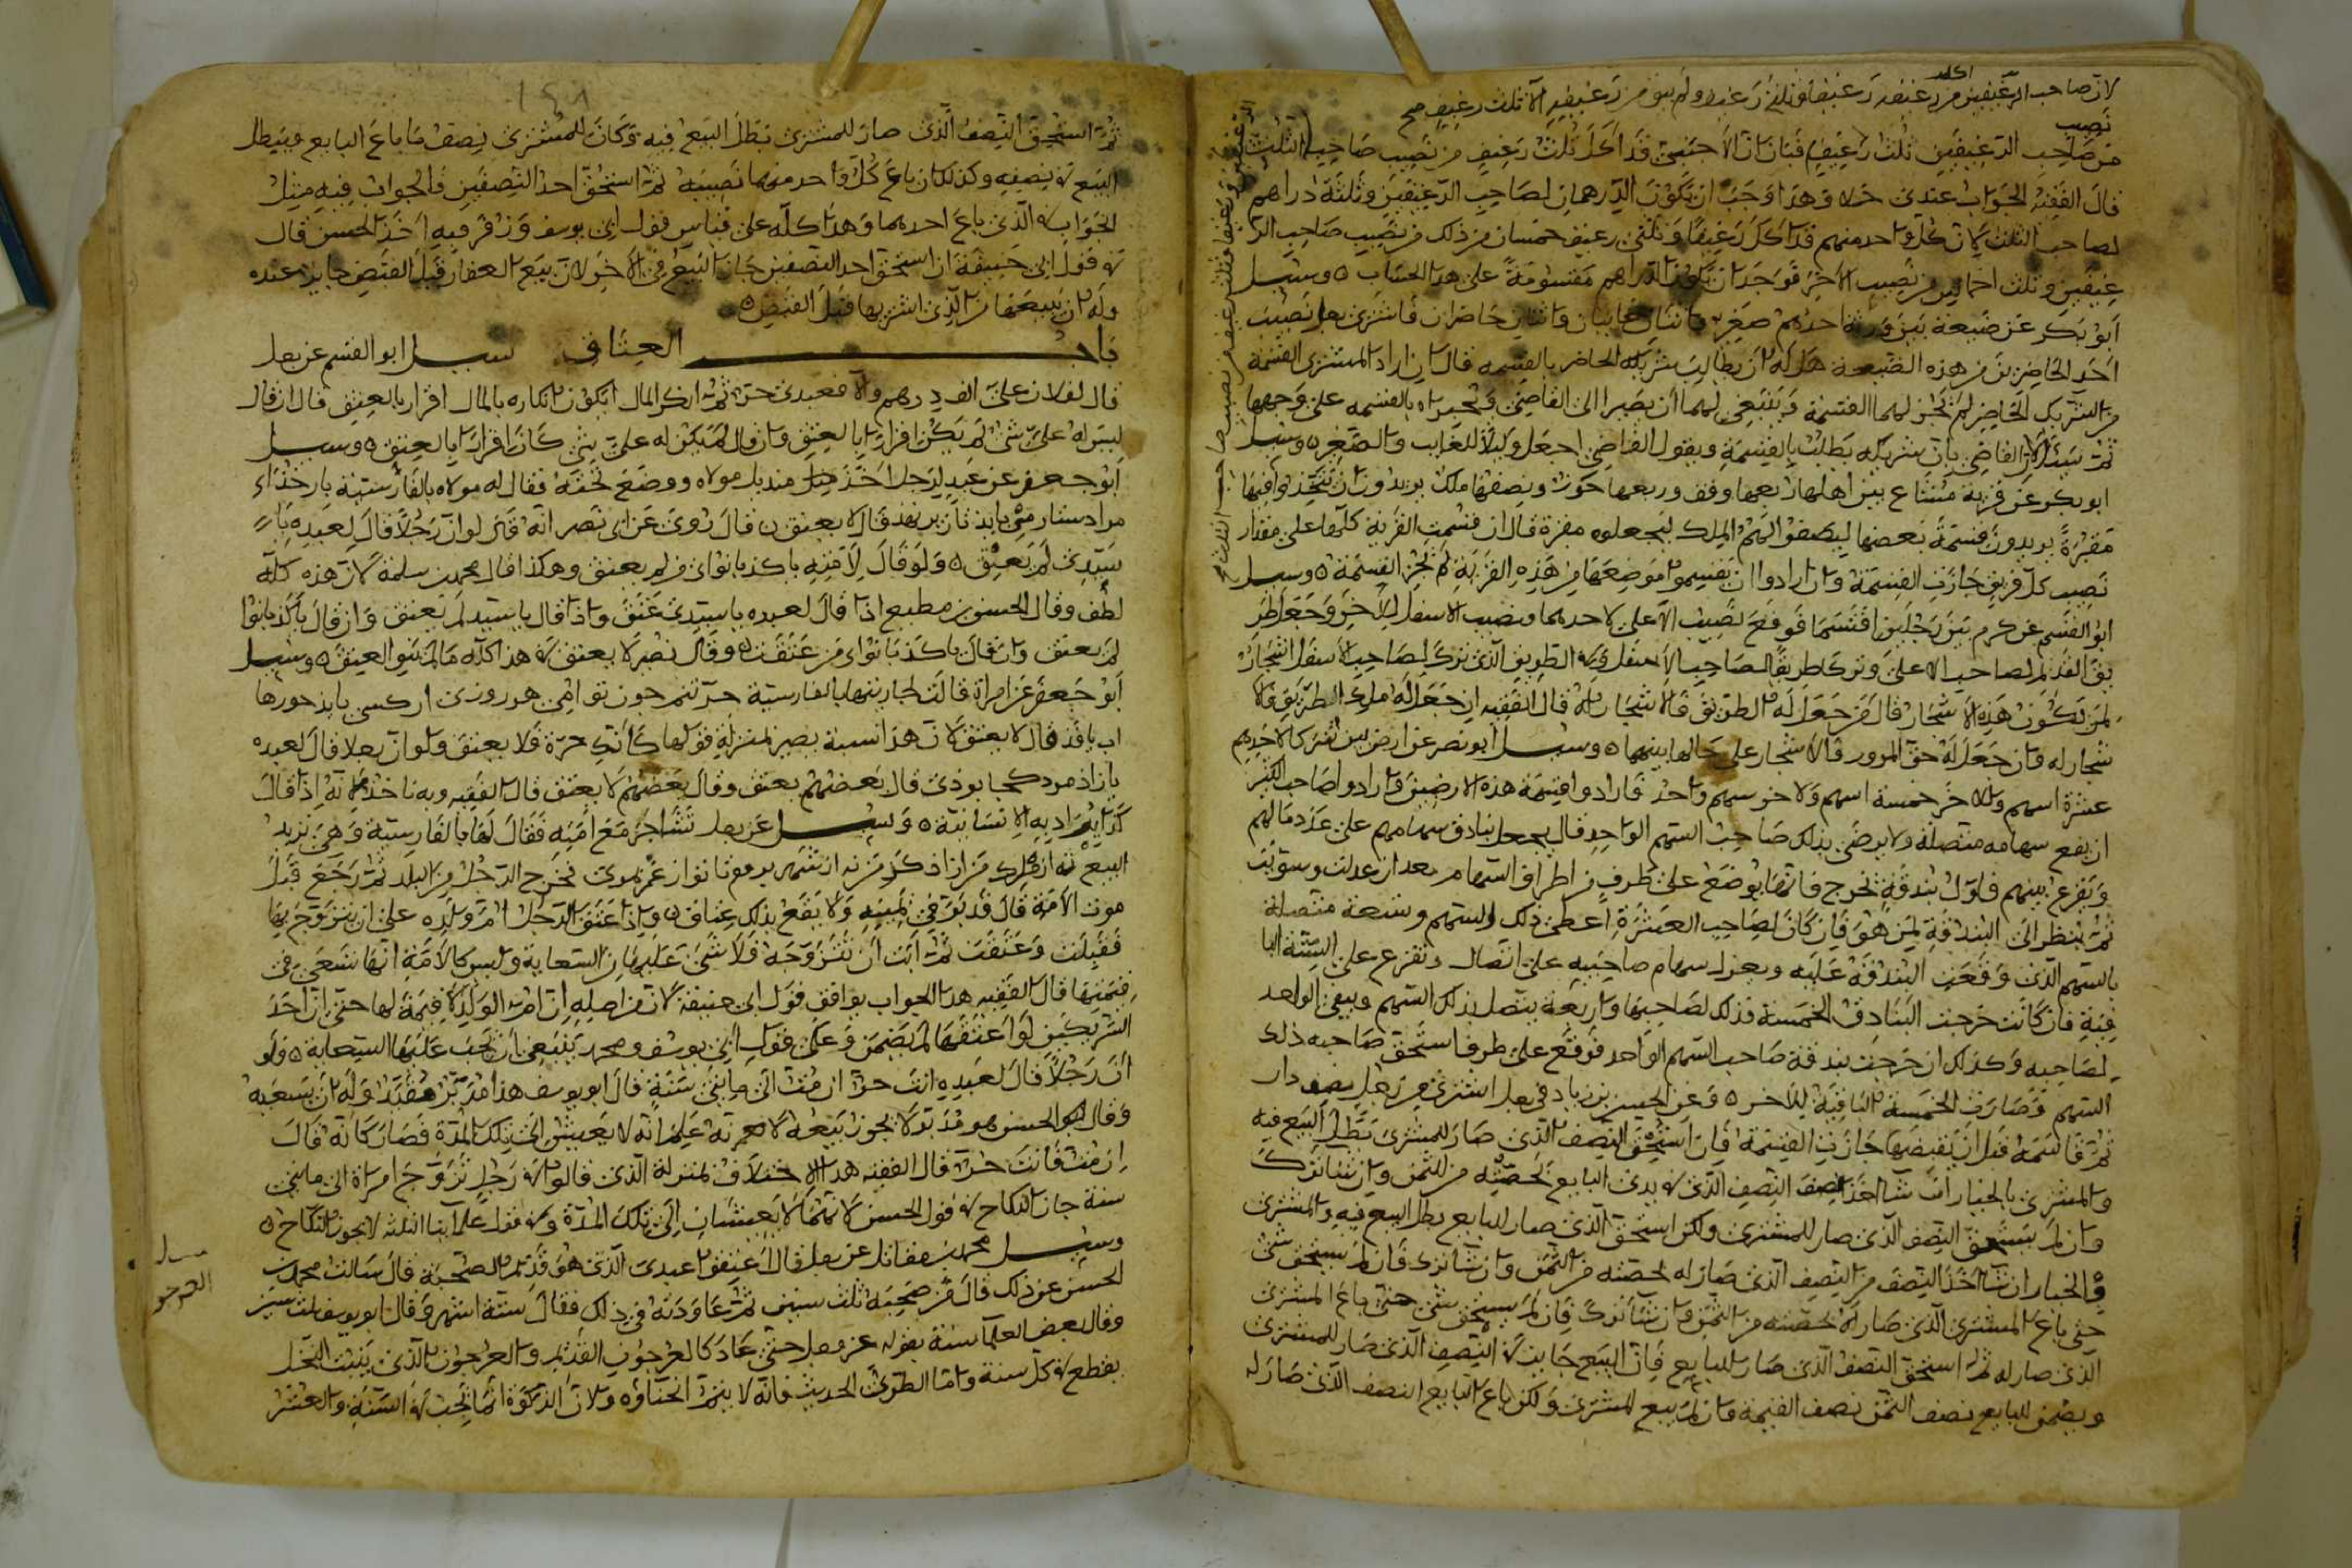 لان صاحب الرغيفين من رغيفه رغيفا وثلثى رغيف ولم يبق من رغيفيه الا ثلث رغيف صح
اكل
نصيب
من صاحب الرغيفين ثلث رغيف فبان ان الاجنبى قد اكل ثلث رغيف من نصيب صاحب الثلث
قال الفقيه الجواب عندى خلاف هذا وجب ان تكون الدرهمان لصاحب الرغيفين وثلثة دراهم
لصاحب الثلث لان كل واحد منهم قد اكل رغيفا وثلثى رغيف خمسان من ذلك من نصيب صاحب الر
غيفين وثلث اخماس من نصيب الاخر فوجب ان تكون الدراهم مقسومة على هذا الحساب ٥ وسئل
ابو بكر عن ضيعة بين ورثة احدهم صغير واثنان غايبان واثنان حاضران فاشترى رجل نصيب
احد الحاضرين من هذه الضيعة هل له ان يطالب شريكه الحاضر بالقسمه قال ان اراد المشترى القسمة
من الشريك الحاضر لم تجز لهما القسمة وينبغى لهما ان يصيرا الى القاضى ويخبراه بالقسمه على وجهها
ثم يسئل القاضى بان شريكه يطلب بالقسمة ويقول القاضى اجعل وكيلا للغايب والصغير ٥ وسئل
ابو بكر عن قرية مشاع بين اهلها ربعها وقف وربعها حوز ونصفها ملك يريدون ان يتخذوا فيها
مقبرة يريدون قسمة بعضها ليصفوا لهم الملك ليجعلوه مقبرة قال ان قسمت القرية كلها على مقدار
نصيب كل فريق جازت القسمة وان ارادوا ان يقسموا موضعها من هذه القرية لم تجز القسمة ٥ وسئل
ابو القسم عن كرم بين رجلين اقتسما فوقع نصيب الاعلى لاحدهما ونصيب الاسفل للاخر وجعل طر
يق القديم لصاحب الاعلى وتركا طريقا لصاحب الاسفل وفى الطريق الذى ترك لصاحب الاسفل اشجار
لمن تكون هذه الاشجار قال لمن جعل له الطريق فالاشجار له قال الفقيه ان جعل له ملك الطريق فالا
شجار له وان جعل له حق المرور فالاشجار على حالها بينهما ٥ وسئل ابو نصر عن ارض بين شركا لاحدهم
عشرة اسهم وللاخر خمسة اسهم ولاخر سهم واحد فارادوا قسمة هذه الارضين واراد صاحب الكثير
ان يقع سهامه متصلة ولا يرضى بذلك صاحب السهم الواحد قال يجعل بنادق سهامهم على عدد مالهم
ويقرع بينهم فاول بندقة تخرج فانها يوضع على طرف من اطراف السهام بعد ان عدلت وسويت
ثم ينظر الى البندقة لمن هو فان كان لصاحب العشرة اعطى ذلك السهم وتسعة متصلة
بالسهم الذى وقعت البندقة عليه ويعزل سهام صاحبيه على اتصال وتقرع على الستة البا
قية فان كانت خرجت البنادق الخمسة فذلك لصاحبها واربعة يتصل بذلك السهم ويبقى الواحد
لصاحبه وكذلك ان خرجت بندقة صاحب السهم الواحد فوقع على طرف استحق صاحبه ذلك
السهم وصارت الخمسة الباقية للاخر ٥ وعن الحسن بن زياد فى رجل اشترى من رجل نصف دار
ثم قاسمه قبل ان يقبضها جازت القسمة فان استحق النصف الذى صار للمشترى بطل البيع فيه
والمشترى بالخيار ان شا اخذ نصف النصف الذى فى يدى البايع بحصته من الثمن وان شا ترك
وان لم يستحق النصف الذى صار للمشترى ولكن استحق الذى صار للبايع بطل البيع فيه والمشترى
بالخيار ان شا اخذ النصف من النصف الذى صار له بحصته من الثمن وان شا ترك فان لم يستحق شى
حتى باع المشترى الذى صار له بحصته من الثمن وان شا ترك فان لم يستحق شى حتى باع المشترى
الذى صار له ثم استحق النصف الذى صار للبايع فان البيع جايز فى النصف الذى صار للمشترى
ويضمن للبايع نصف الثمن نصف القيمة وان لم يبيع المشترى ولكن باع البايع النصف الذى صار له
١٤٨
ثم استحق النصف الذى صار للمشترى بطل البيع فيه وكان للمشترى نصف ما باع البايع ويبطل
البيع فى نصفه وكذلك ان باع كل واحد منهما نصيبه ثم استحق احد النصفين فالجواب فيه مثل
الجواب فى الذى باع احدهما وهذا كله على قياس قول ابى يوسف وزفر فيه اخذ الحسن قال
فى قول ابى حنيفة ان استحق احد النصفين جاز البيع فى الاخر لان بيع العقار قبل القبض جايز عنده
وله ان يبيعها من الذى اشتريها قبل القبض ٥
باب العتاق سئل ابو القسم عن رجل
قال لفلان على الف درهم والا فعبدى حر ثم انكر المال ايكون انكاره بالمال اقرار بالعتق قال ان قال
ليس له على شئ لم يكن اقرارا بالعتق وان قال لم يكن له على شئ كان اقرارا بالعتق ٥ وسئل
ابو جعفر عن عبد لرجل اخذ منديل مولاه ووضع تحته فقال له مولاه بالفارسية بار خداء
قال لا يعتق ٥ قال روى عن ابى نصر انه قال لو ان رجلا قال لعبده يا
سيدى لم يعتق ٥ ولو قال لامته يا كذبانواى من لم يعتق وهكذا قال محمد بن سلمة لان هذه كله
لطف وقال الحسن بن مطيع اذا قال لعبده يا سيدى عتق واذا قال يا سيد لم يعتق وان قال يا كذبانوا
لم يعتق وان قال يا كذبانواى من عتقت ٥ وقال نصر لا يعتق فى هذا كله ما لم ينو العتق ٥ وسئل
ابو جعفر عن امراة قالت لجاريتها بالفارسية
قال لا يعتق لان هذا نسبة يصير لمنزلة قولها كانك حرة فلا يعتق ولو ان رجلا قال لعبده
قال بعضهم يعتق وقال بعضهم لا يعتق قال الفقيه وبه ناخذ لانه اذا قال
يراد به الانسانية ٥ وسئل عن رجل تشاجر مع امته فقال لها بالفارسية وهى تريد
البيع فخرج الرجل من البلد ثم رجع قبل
موت الامة قال قد بر فى يمينه ولا يقع بذلك عتاق ٥ واذا عتق الرجل ام ولده على ان يتزوج بها
فقبلت وعتقت ثم ابت ان تتزوجه فلا شئ عليها من السعاية وليس كالامة انها تسعى فى
قيمتها قال الفقيه هذا الجواب يوافق قول ابى حنيفة لان من اصله ان ام الولد لا قيمة لها حتى ان احد
الشريكين لو اعتقها لم يضمن وعلى قول ابى يوسف ومحمد ينبغى ان تجب عليها السعاية ٥ ولو
ان رجلا قال لعبده انت حر ان مت الى مايتى سنة قال ابو يوسف هذا مدبر مقيد وله ان يبيعه
وقال الحسن هو مدبر لا يجوز بيعه لانه علم انه لا يعيش الى تلك المدة فصار كانه قال
ان مت فانت حر قال الفقيه هذا الاختلاف لمنزلة الذى قالوا فى رجل تزوج امراة الى مايتى
سنة جاز النكاح فى قول الحسن لانهما لا يعيشان الى تلك المدة وفى قول علماينا الثلثة لا يجوز النكاح ٥
وسئل محمد بن مقاتل عن رجل قال اعتقوا عبدى الذى هو قديم الصحبة قال سالت محمد بن
الحسن عن ذلك قال من صحبه ثلث سنين ثم عاودته فى ذلك فقال ستة اشهر وقال ابو يوسف ثلث سنين
وقال بعض العلما سنة بقوله عز وجل حتى عاد كالعرجون القديم والعرجون الذى ينبت النخل
يقطع فى كل سنة واما الطرى الحديث فانه لا يتم انحناؤه ولان الزكوة انما تجب فى السنة والعشر